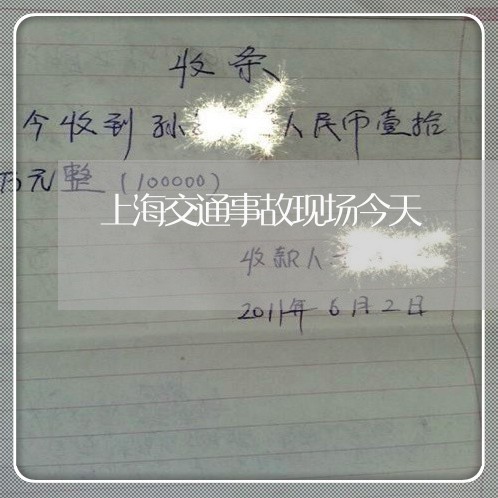 收条
今收到孙 人民币壹拾
万元整(100000)
上海交通事故现场今天
收款人
2011年6月2日